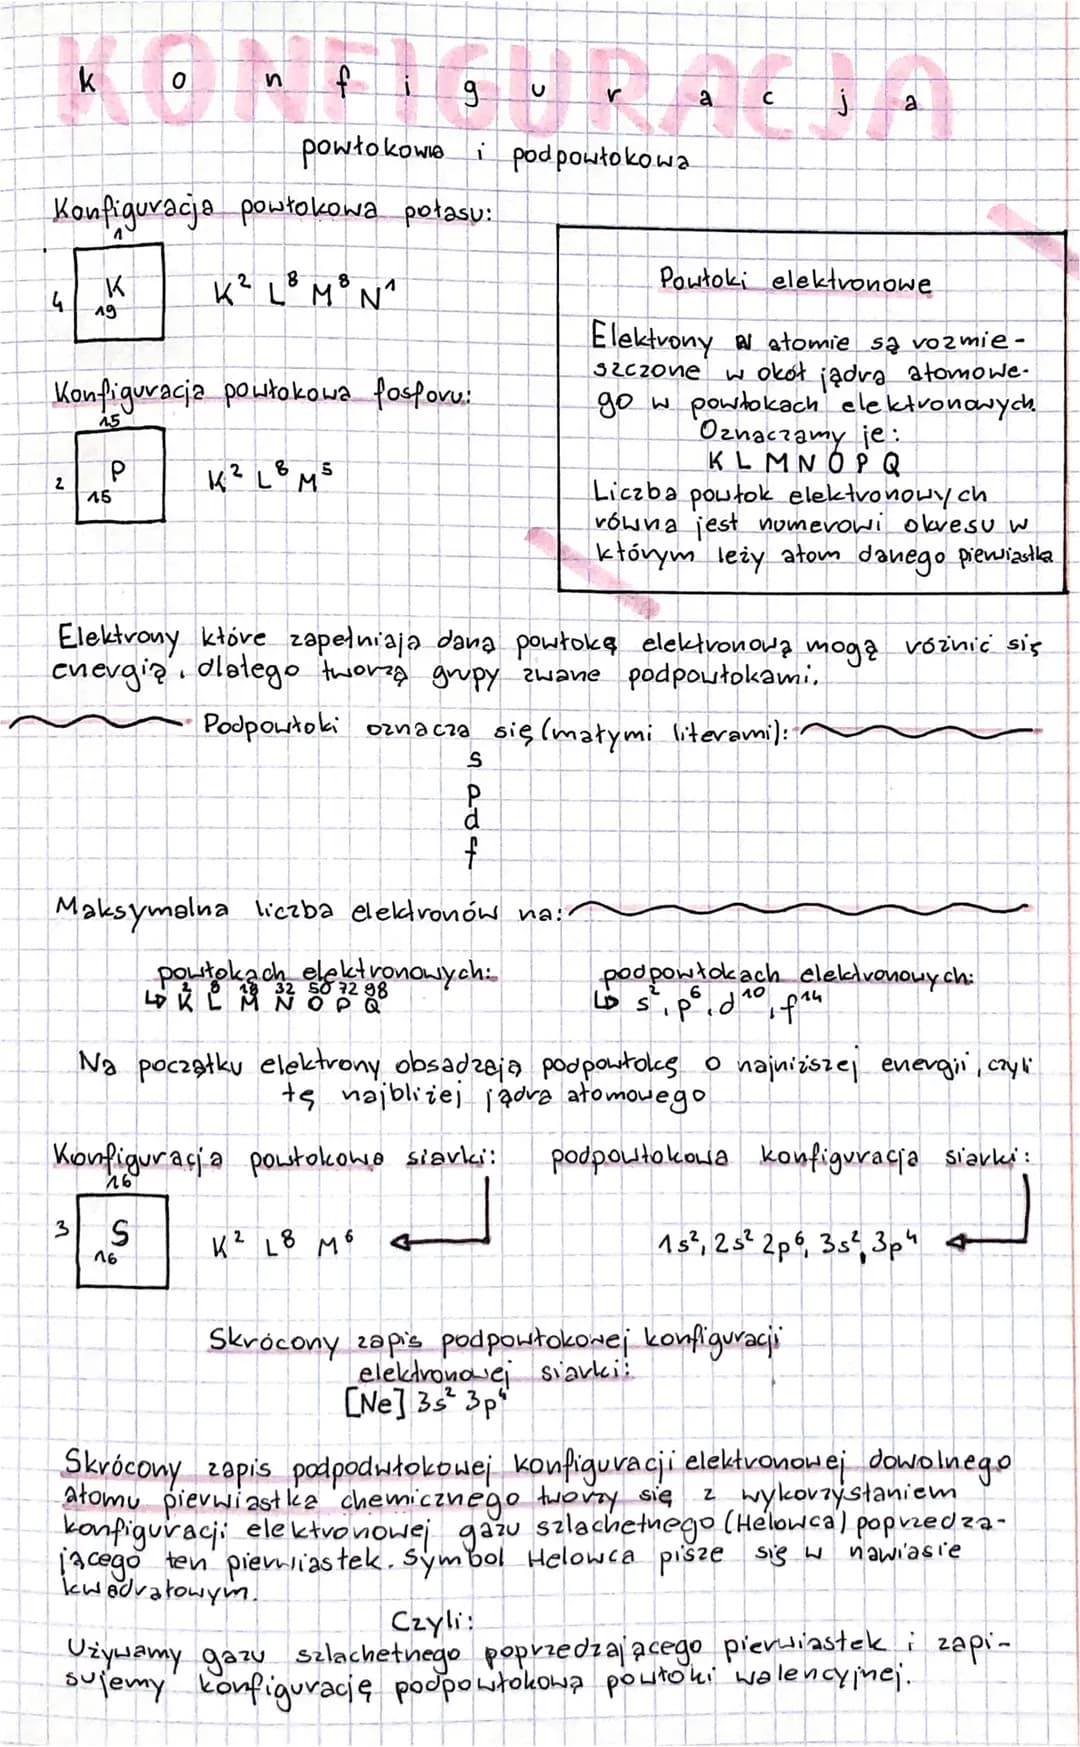 KONFIGURACJA
konfiguracja
powłokowa i podpowłokowa
Konfiguracja powłokowa potasu:
1
4 K
19
K² L⁸ M⁸ N¹
Konfiguracja powłokowa fosforu:
15
2 P
15
K² L⁸ M⁵
Powłoki elektronowe
Elektrony w atomie są rozmie-
szczone w okół jądra atomowe-
go w powłokach elektronowych.
Oznaczamy je:
K L M N O P Q
Liczba powłok elektronowych
równa jest numerowi okresu w
którym leży atom danego pierwiastka
Elektrony które zapełniają daną powłokę elektronową mogą różnić się
energią, dlatego tworzą grupy zwane podpowłokami.
Podpowłoki oznacza się (małymi literami):
s
p
d
f
Maksymalna liczba elektronów na:
powłokach elektronowych:
↳ K² L⁸ M¹⁸ N³² O⁵⁰ P⁷² Q⁹⁸
podpowłokach elektronowych:
↳ s², p⁶, d¹⁰, f¹⁴
Na początku elektrony obsadzają podpowłokę o najniższej energii, czyli
tę najbliżej jądra atomowego
Konfiguracja powłokowa siarki:
16
3 S
16
K² L⁸ M⁶
podpowłokowa konfiguracja siarki:
1s², 2s² 2p⁶, 3s², 3p⁴
Skrócony zapis podpowłokowej konfiguracji
elektronowej siarki:
[Ne] 3s² 3p⁴
Skrócony zapis podpodwłokowej konfiguracji elektronowej dowolnego
atomu pierwiastka chemicznego tworzy się z wykorzystaniem
konfiguracji elektronowej gazu szlachetnego (Helowca) poprzedza-
jącego ten pierwiastek. Symbol Helowca pisze się w nawiasie
kwadratowym.
Czyli:
Używamy gazu szlachetnego poprzedzającego pierwiastek i zapi-
sujemy konfigurację podpowłokową powłoki walencyjnej.